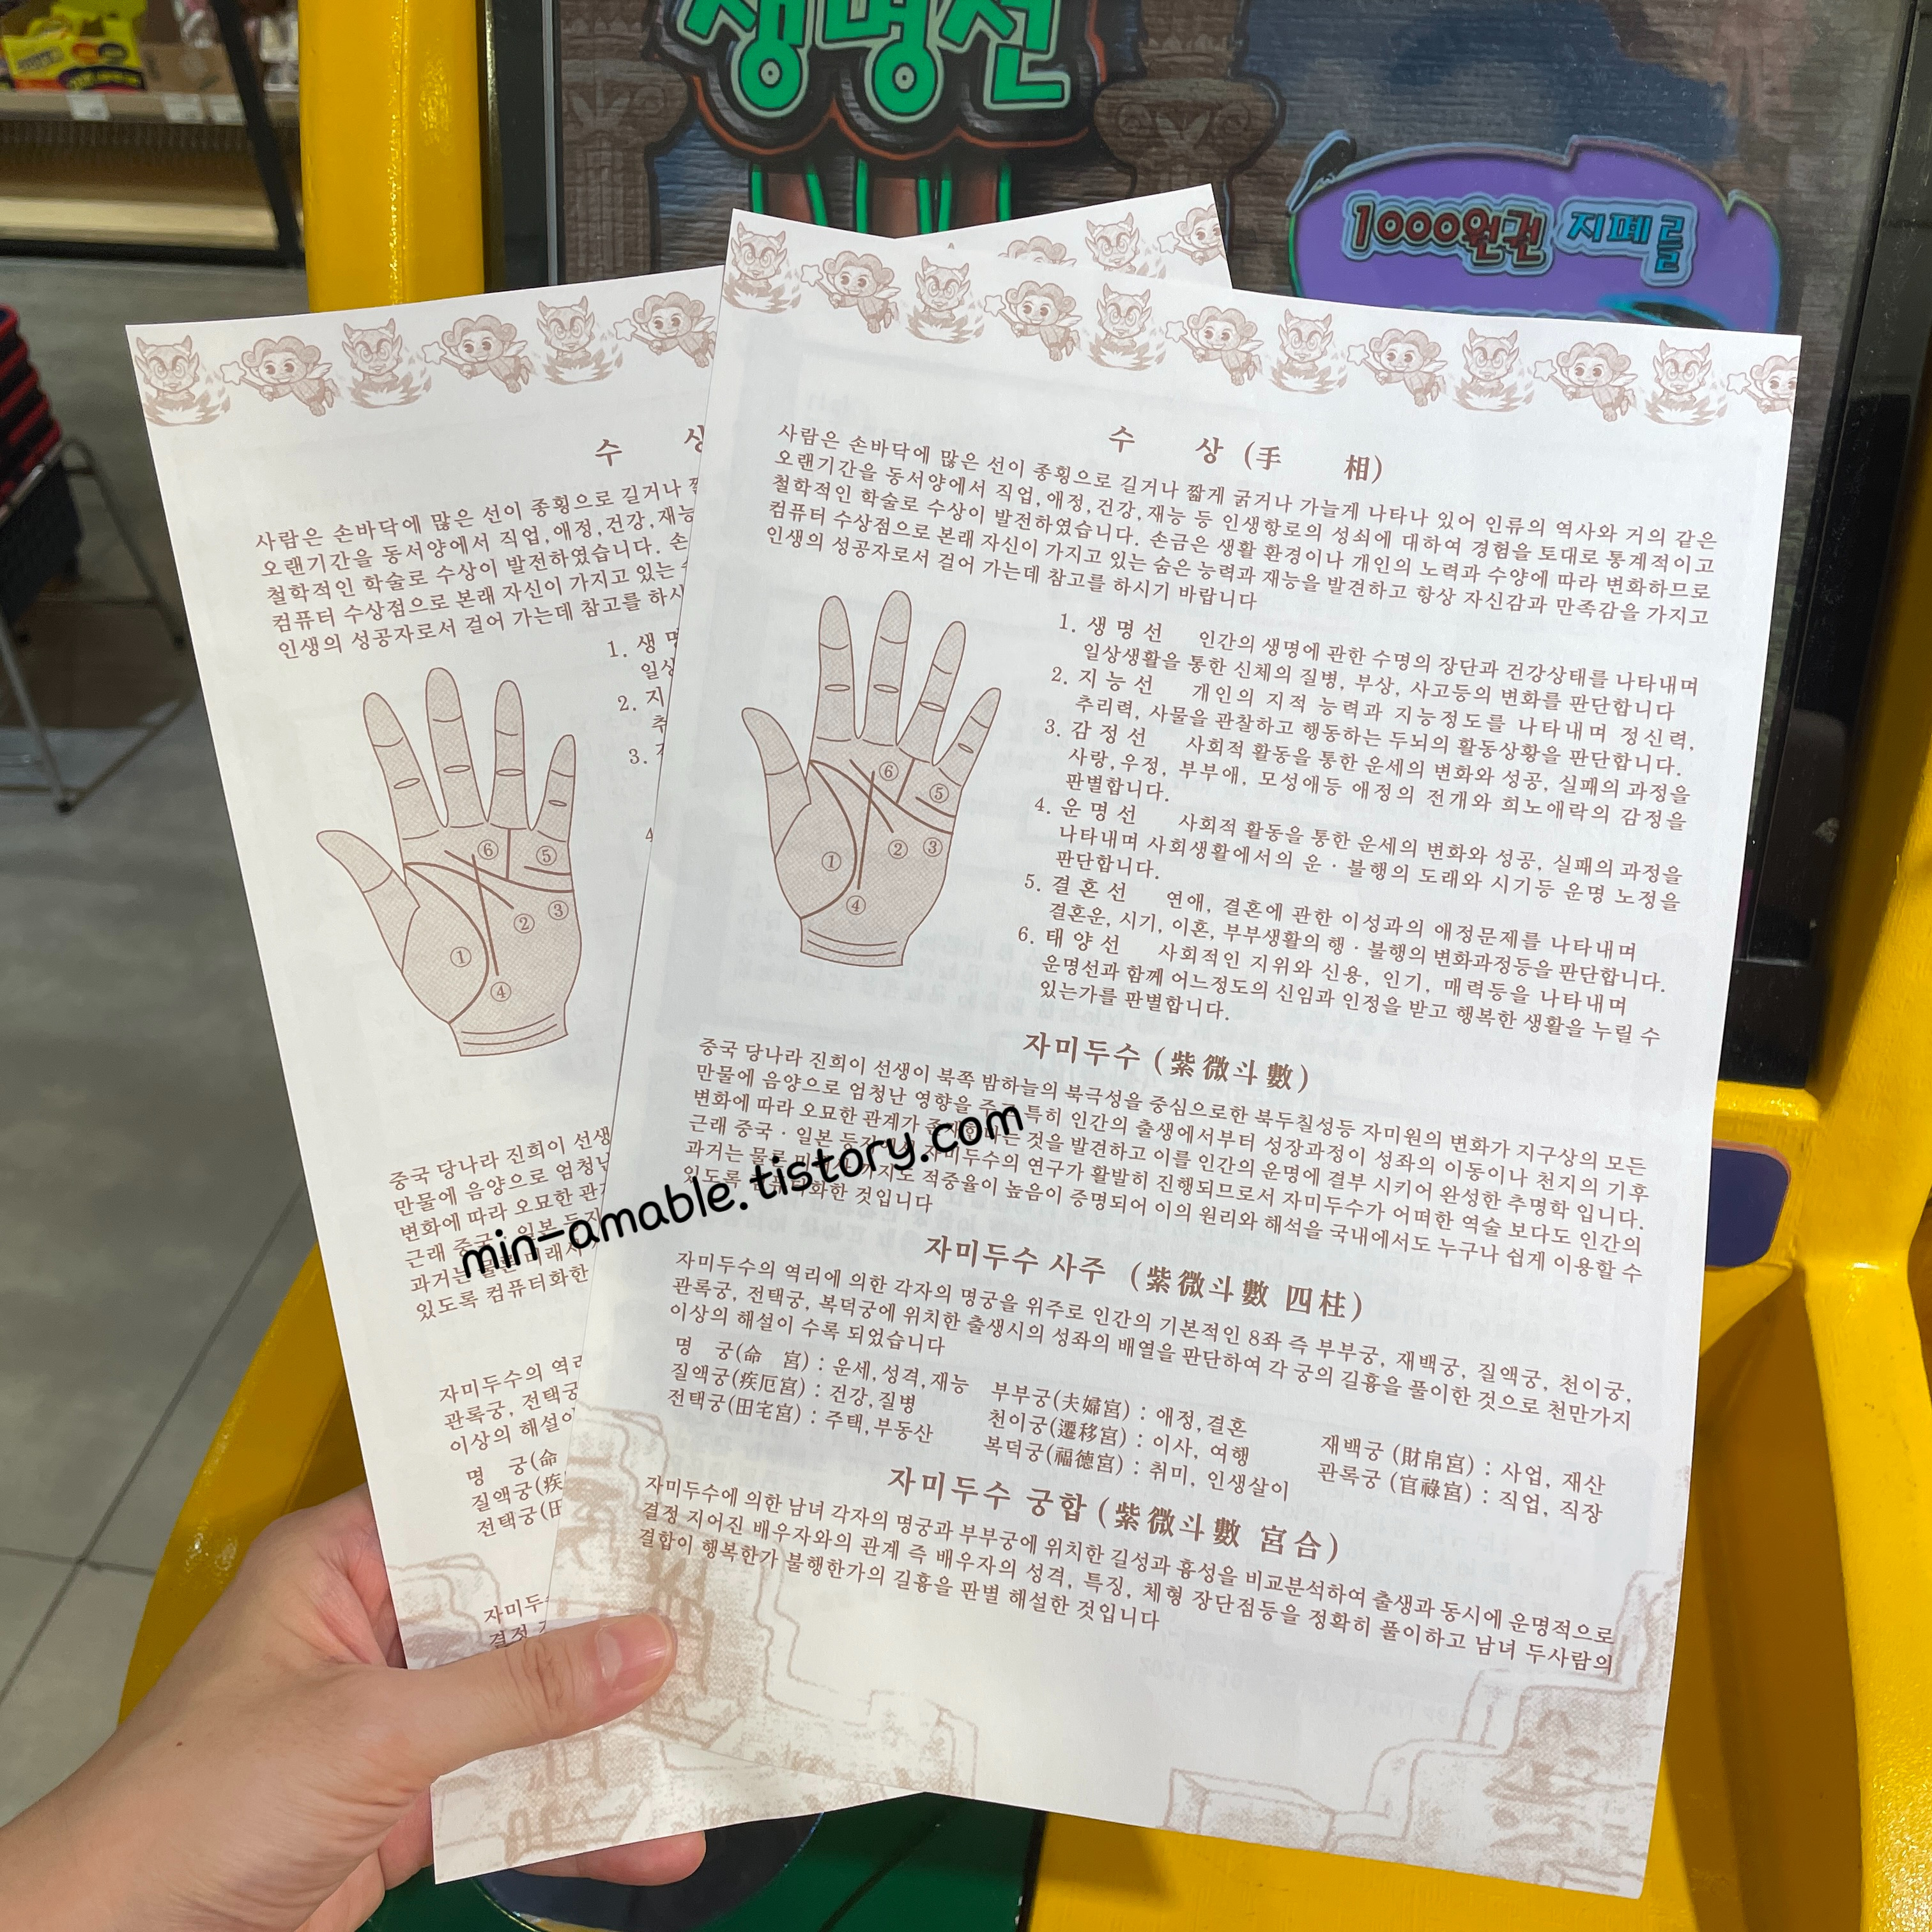 생명선
1000원권 지폐를
수 상 (手 相)
사람은 손바닥에 많은 선이 종횡으로 길거나 짧게 굵거나 가늘게 나타나 있어 인류의 역사와 거의 같은
오랜기간을 동서양에서 직업,애정,건강,재능 등 인생항로의 성쇠에 대하여 경험을 토대로 통계적이고
철학적인 학술로 수상이 발전하였습니다. 손금은 생활 환경이나 개인의 노력과 수양에 따라 변화하므로
컴퓨터 수상점으로 본래 자신이 가지고 있는 숨은 능력과 재능을 발견하고 항상 자신감과 만족감을 가지고
인생의 성공자로서 걸어 가는데 참고를 하시기 바랍니다
1. 생 명 선 인간의 생명에 관한 수명의 장단과 건강상태를 나타내며
일상생활을 통한 신체의 질병, 부상, 사고등의 변화를 판단합니다
2. 지 능 선 개인의 지적 능력과 지능정도를 나타내며 정신력,
추리력, 사물을 관찰하고 행동하는 두뇌의 활동상황을 판단합니다.
3. 감 정 선 사회적 활동을 통한 운세의 변화와 성공, 실패의 과정을
사랑,우정, 부부애, 모성애등 애정의 전개와 희노애락의 감정을
판별합니다.
4. 운 명 선 사회적 활동을 통한 운세의 변화와 성공, 실패의 과정을
나타내며 사회생활에서의 운 · 불행의 도래와 시기등 운명 노정을
판단합니다.
5. 결 혼 선 연애, 결혼에 관한 이성과의 애정문제를 나타내며
결혼운, 시기, 이혼, 부부생활의 행 · 불행의 변화과정등을 판단합니다.
6. 태 양 선 사회적인 지위와 신용, 인기, 매력등을 나타내며
운명선과 함께 어느정도의 신임과 인정을 받고 행복한 생활을 누릴 수
있는가를 판별합니다.
⑥
⑤
① ② ③
④
자미두수 (紫微斗數)
중국 당나라 진희이 선생이 북쪽 밤하늘의 북극성을 중심으로한 북두칠성등 자미원의 변화가 지구상의 모든
만물에 음양으로 엄청난 영향을 주고 특히 인간의 출생에서부터 성장과정이 성좌의 이동이나 천지의 기후
변화에 따라 오묘한 관계가 것을 발견하고 이를 인간의 운명에 결부 시키어 완성한 추명학 입니다.
근래 중국 · 일본 자미두수의 연구가 활발히 진행되므로서 자미두수가 어떠한 역술 보다도 인간의
과거는 물론 적중율이 높음이 증명되어 이의 원리와 해석을 국내에서도 누구나 쉽게 이용할 수
있도록 컴퓨터화한 것입니다
자미두수 사주 (紫微斗數 四柱)
자미두수의 역리에 의한 각자의 명궁을 위주로 인간의 기본적인 8좌 즉 부부궁, 재백궁, 질액궁, 천이궁,
관록궁, 전택궁, 복덕궁에 위치한 출생시의 성좌의 배열을 판단하여 각 궁의 길흉을 풀이한 것으로 천만가지
이상의 해설이 수록 되었습니다
명 궁(命 宮) : 운세,성격,재능 부부궁(夫婦宮) : 애정,결혼 재백궁 (財帛宮) : 사업, 재산
질액궁(疾厄宮) : 건강,질병 천이궁(遷移宮) : 이사, 여행 관록궁 (官祿宮) : 직업, 직장
전택궁(田宅宮) : 주택,부동산 복덕궁(福德宮) : 취미, 인생살이
자미두수 궁합 (紫微斗數 宮合)
자미두수에 의한 남녀 각자의 명궁과 부부궁에 위치한 길성과 흉성을 비교분석하여 출생과 동시에 운명적으로
결정 지어진 배우자와의 관계 즉 배우자의 성격, 특징, 체형 장단점등을 정확히 풀이하고 남녀 두사람의
결합이 행복한가 불행한가의 길흉을 판별 해설한 것입니다
수
사람은 손바닥에 많은 선이 종횡으로 길거나
오랜기간을 동서양에서 직업,애정,건강,재능
철학적인 학술로 수상이 발전하였습니다. 손
컴퓨터 수상점으로 본래 자신이 가지고 있는
인생의 성공자로서 걸어 가는데 참고를 하시
1. 생
일상
2. 지
추
3.
4
⑥ ⑤
① ② ③
④
중국 당나라 진희이 선생
만물에 음양으로 엄청난
변화에 따라 오묘한 관
근래 중국 · 일본
과거는 물론 미래
있도록 컴퓨터화한
자미두수의 역리
관록궁, 전택궁
이상의 해설이
명 궁(命
질액궁(疾
전택궁(田
자미두수
결정
min-amable.tistory.com